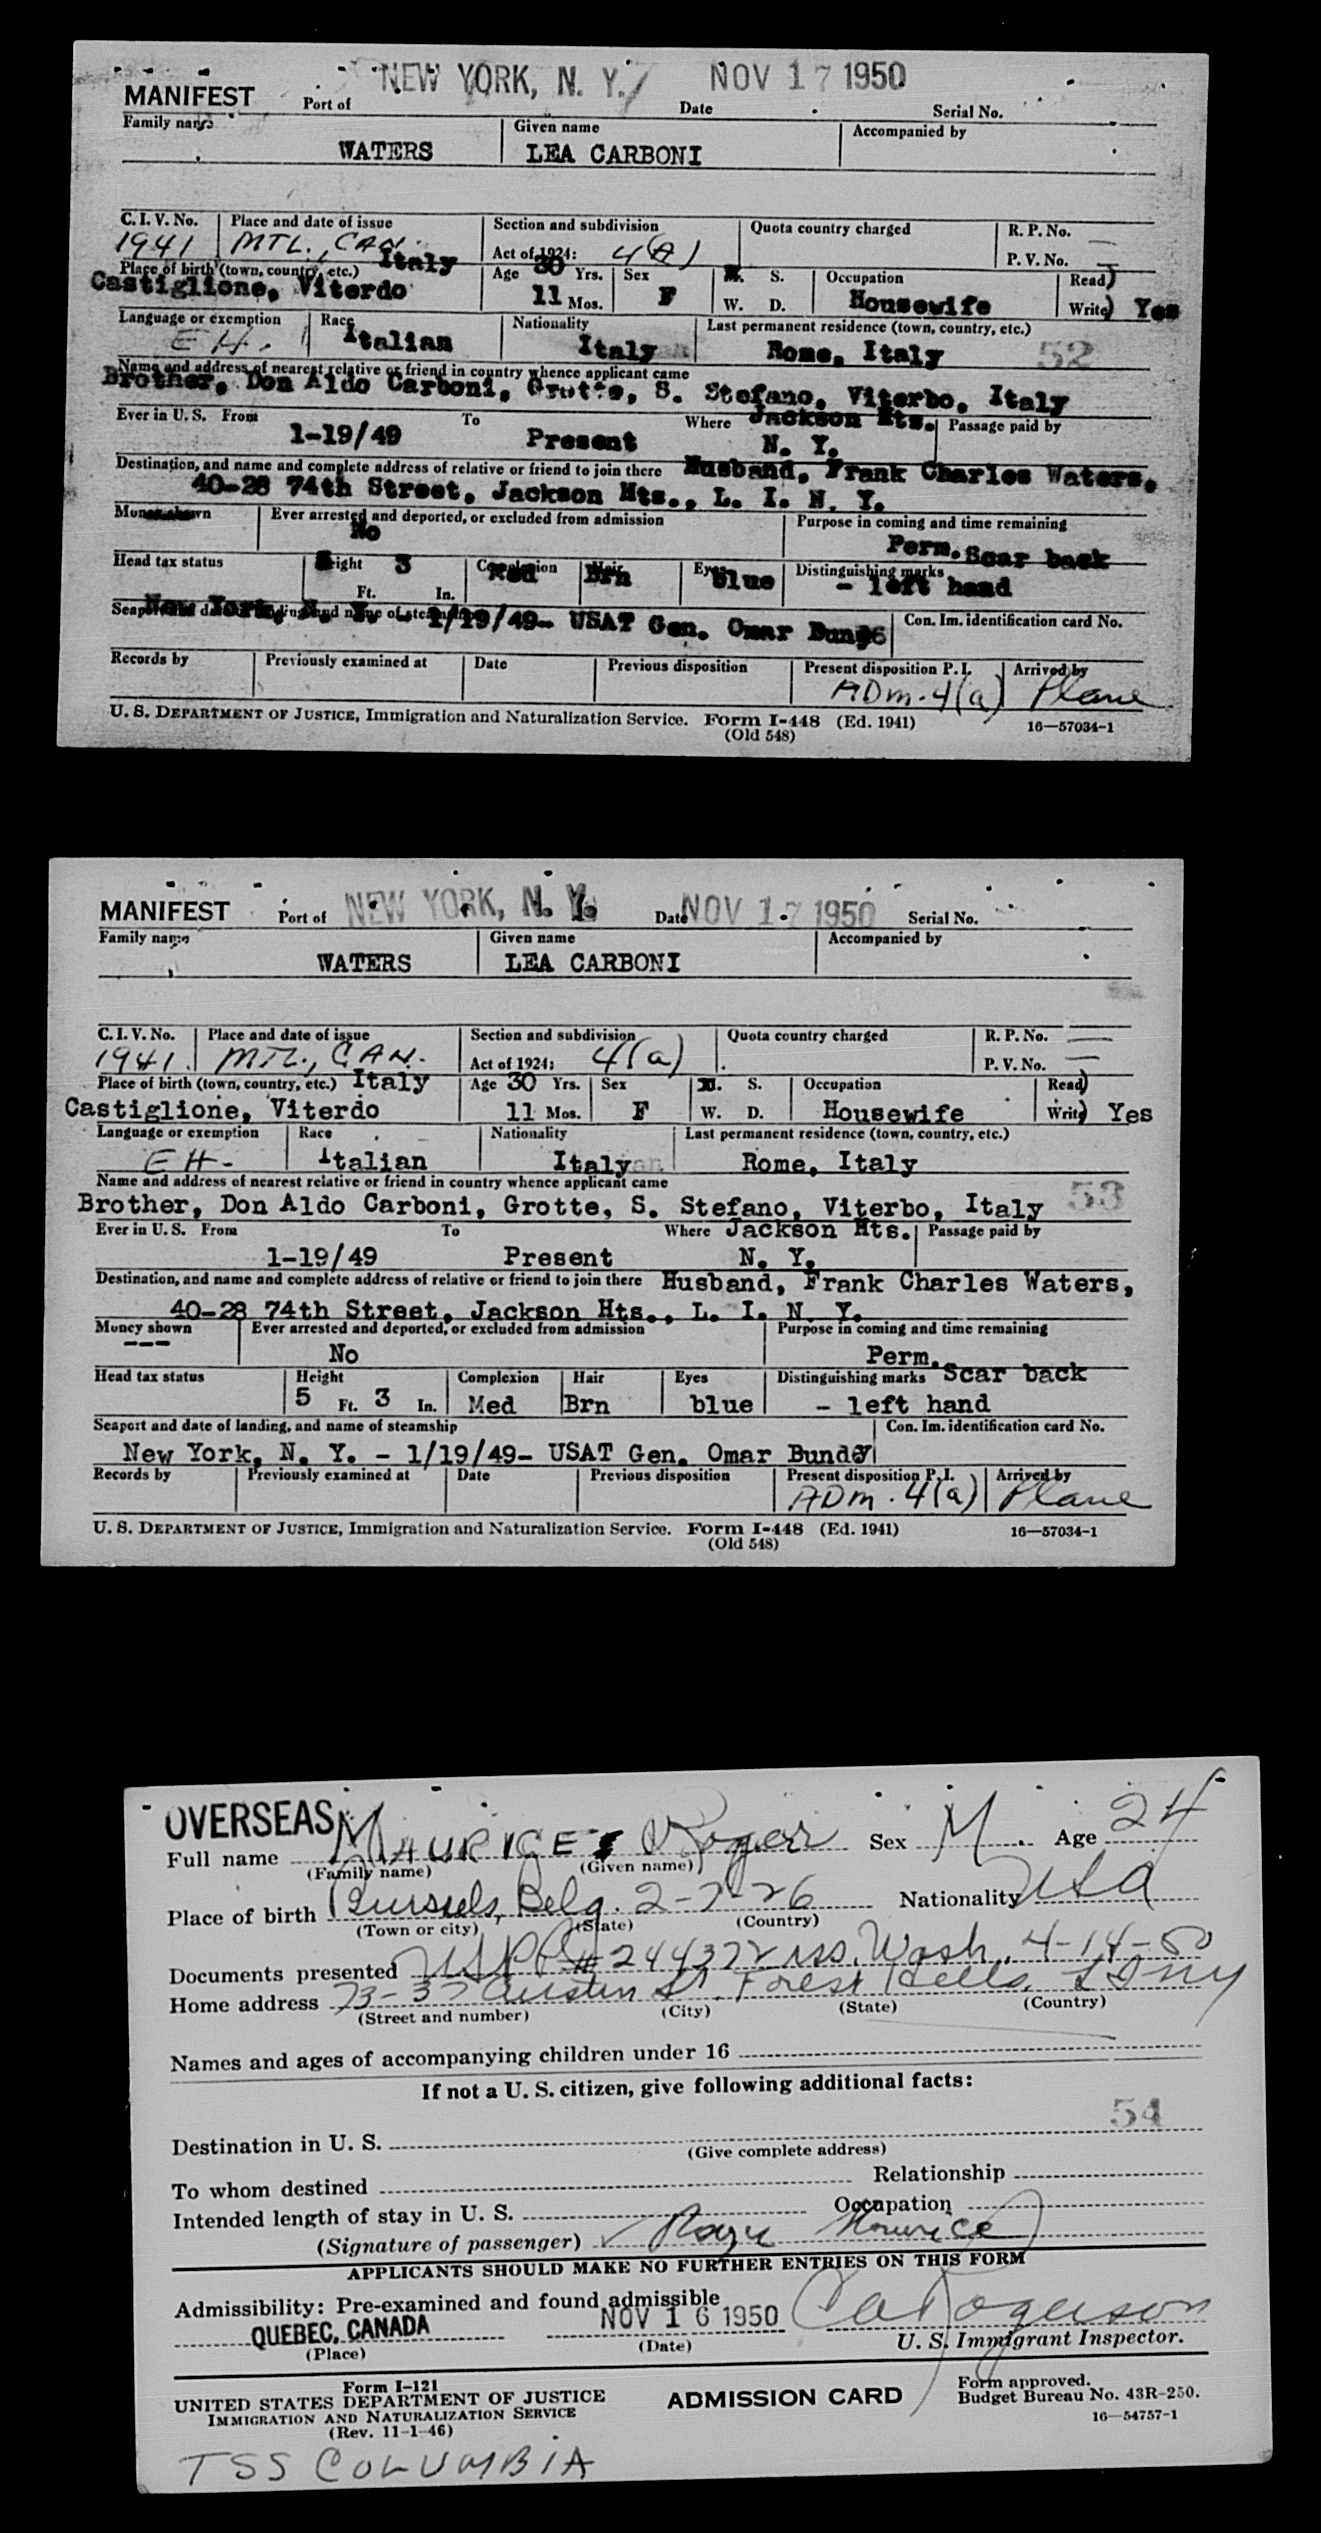 NEW YORK, N. Y. NOV 17 1950
MANIFEST Port of Date Serial No.
Family name Given name Accompanied by
WATERS LEA CARBONI
C. I. V. No. Place and date of issue Section and subdivision Quota country charged R. P. No. —
1941 MTL., CAN. Act of 1924: 4(A) P. V. No. —
Place of birth (town, country, etc.) Italy Age 30 Yrs. Sex M. S. Occupation Read)
Castiglione, Viterdo 11 Mos. F W. D. Housewife Write) Yes
Language or exemption Race Nationality Last permanent residence (town, country, etc.)
EH. Italian Italy Rome, Italy 52
Name and address of nearest relative or friend in country whence applicant came
Brother, Don Aldo Carboni, Grotte, S. Stefano, Viterbo, Italy
Ever in U. S. From To Where Jackson Hts. Passage paid by
1-19/49 Present N. Y.
Destination, and name and complete address of relative or friend to join there Husband, Frank Charles Waters,
40-28 74th Street, Jackson Hts., L. I. N. Y.
Money shown Ever arrested and deported, or excluded from admission Purpose in coming and time remaining
No Perm.
Head tax status Height 3 Complexion Hair Eyes Distinguishing marks Scar back
Ft. In. Med Brn blue - left hand
Seaport and date of landing, and name of steamship Con. Im. identification card No.
New York, N. Y. - 1/19/49- USAT Gen. Omar Bundy
Records by Previously examined at Date Previous disposition Present disposition P. I. Arrived by
ADM. 4(a) Plane
U. S. DEPARTMENT OF JUSTICE, Immigration and Naturalization Service. Form I-448 (Ed. 1941) 16—57034-1
(Old 548)
MANIFEST Port of NEW YORK, N. Y. Date NOV 17 1950 Serial No.
Family name Given name Accompanied by
WATERS LEA CARBONI
C. I. V. No. Place and date of issue Section and subdivision Quota country charged R. P. No. —
1941 MTL., CAN. Act of 1924: 4(a) P. V. No. —
Place of birth (town, country, etc.) Italy Age 30 Yrs. Sex M. S. Occupation Read)
Castiglione, Viterdo 11 Mos. F W. D. Housewife Write) Yes
Language or exemption Race Nationality Last permanent residence (town, country, etc.)
EH- Italian Italy Rome, Italy
Name and address of nearest relative or friend in country whence applicant came
Brother, Don Aldo Carboni, Grotte, S. Stefano, Viterbo, Italy 53
Ever in U. S. From To Where Jackson Hts. Passage paid by
1-19/49 Present N. Y.
Destination, and name and complete address of relative or friend to join there Husband, Frank Charles Waters,
40-28 74th Street, Jackson Hts., L. I. N. Y.
Money shown Ever arrested and deported, or excluded from admission Purpose in coming and time remaining
--- No Perm.
Head tax status Height Complexion Hair Eyes Distinguishing marks Scar back
5 Ft. 3 In. Med Brn blue - left hand
Seaport and date of landing, and name of steamship Con. Im. identification card No.
New York, N. Y. - 1/19/49- USAT Gen. Omar Bundy
Records by Previously examined at Date Previous disposition Present disposition P. I. Arrived by
ADM. 4(a) Plane
U. S. DEPARTMENT OF JUSTICE, Immigration and Naturalization Service. Form I-448 (Ed. 1941) 16—57034-1
(Old 548)
OVERSEAS
Full name MAURICE, Roger Sex M. Age 24
(Family name) (Given name)
Place of birth Brussels, Belg. 2-7-26 Nationality USA
(Town or city) (State) (Country)
Documents presented USPP # 244372 iss. Wash. 4-14-50
Home address 73-37 Austin St. Forest Hills, L I NY
(Street and number) (City) (State) (Country)
Names and ages of accompanying children under 16
If not a U. S. citizen, give following additional facts:
54
Destination in U. S.
(Give complete address)
To whom destined Relationship
Intended length of stay in U. S. Occupation
(Signature of passenger) Roger Maurice
APPLICANTS SHOULD MAKE NO FURTHER ENTRIES ON THIS FORM
Admissibility: Pre-examined and found admissible
QUEBEC, CANADA NOV 16 1950
(Place) (Date) U. S. Immigrant Inspector.
Form I-121
UNITED STATES DEPARTMENT OF JUSTICE
IMMIGRATION AND NATURALIZATION SERVICE
(Rev. 11-1-46)
ADMISSION CARD
Form approved.
Budget Bureau No. 43R-250.
16—54757-1
TSS COLUMBIA